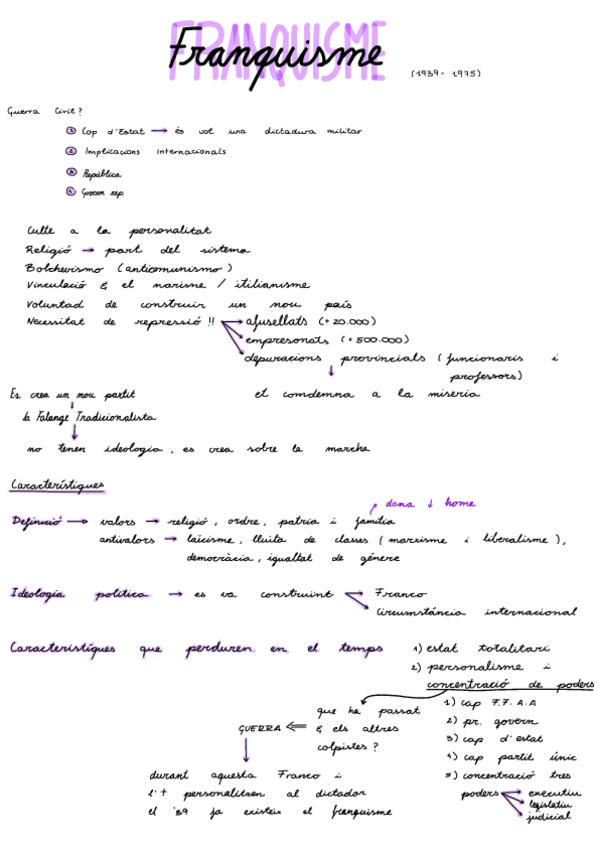 FRANQUISME
Franquisme (1939-1975)
Guerra Civil?
1 Cop d'Estat → és vol una dictadura militar
2 Implicacions internacionals
3 República
4
Culte a la personalitat
Religió → part del sistema
Bolchevismo (anticomunismo)
Vinculació & el narisme / itilianisme
Voluntad de construir un nou país
Necessitat de repressió !! → afusellats (+20.000)
empresonats (+500.000)
depuracions provincials (funcionaris i
professors)
et comdemna a la miseria
Es crea un nou partit
la Falange Tradicionalista
no tenen ideologia, es crea sobre la marcha
Característiques
dona ↓ home
Definició → valors → religió, ordre, patria i família
antivalors → laïcisme, lluita de classes (marxisme i liberalisme),
democràcia, igualtat de gènere
Ideologia política → es va construint → Franco
Circumstància internacional
Característiques que perduren en el temps 1) estat totalitari
2) personalisme i
concentració de poders
1) cap F.F.A.A
2) pr. govern
3) cap d'estat
4) cap partit únic
5) concentració tres
poders → executiu
legislatiu
judicial
que ha passat
GUERRA ⇐ & els altres
colpistes?
durant aquesta Franco i
l'+ personalitzen al dictador
el '39 ja existeix el franquisme